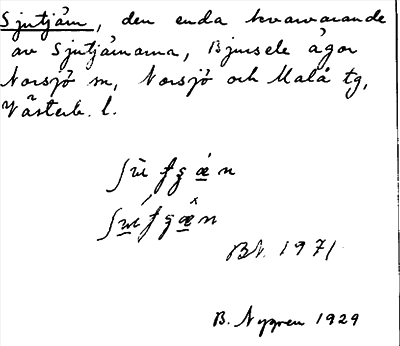 Sjutjärn, den enda kvarvarande
av Sjutjärnarna, Bjursele ägor
Norsjö sn, Norsjö och Malå tg,
Västerb. l.
BN. 1971
B. Nygren 1929